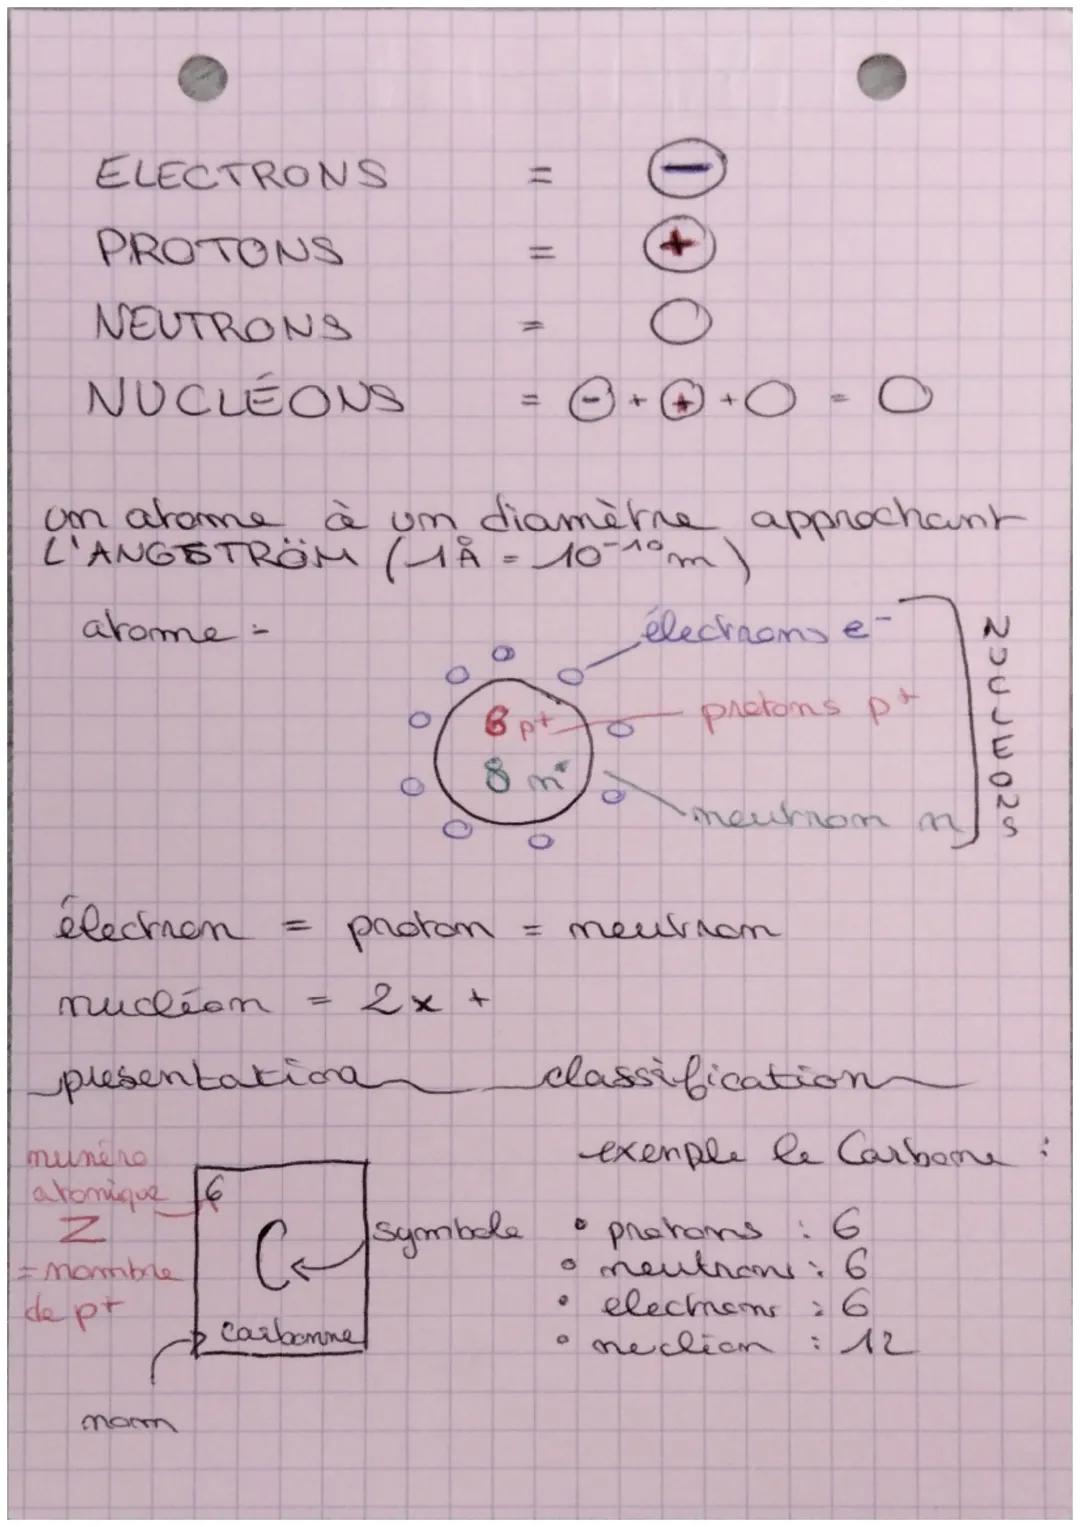 ELECTRONS = ⊖
PROTONS = ⊕
NEUTRONS = ○
NUCLÉONS = ⊖ + ⊕ + ○ = ○
um atome à um diamètre approchant
L'ANGSTRÖM (1Å = 10⁻¹⁰m)
atome :
électrons e⁻
protons p+
neutron n
NUCLEONS
8 p+
8 n°
électron = proton = neutron
nucléon = 2x +
présentation classification
exemple le Carbone :
numéro
atomique
Z
= nombre
de p+
6
C
carbonne
symbole
nom
• protons : 6
• neutrons : 6
• electrons : 6
• neclion : 12